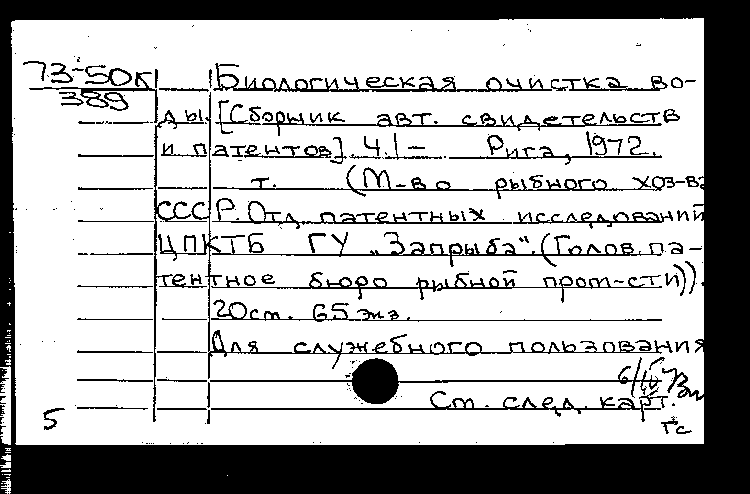 73-50к
389
Биологическая очистка во-
ды. [Сборник авт. свидетельств
и патентов]. Ч.1- Рига, 1972.
т. (М-во рыбного хоз-ва
СССР. Отд. патентных исследований
ЦПКТБ ГУ „Запрыба". (Голов. па-
тентное бюро рыбной пром-сти)).
20см. 65 экз.
Для служебного пользования
Ст. след. карт.
5